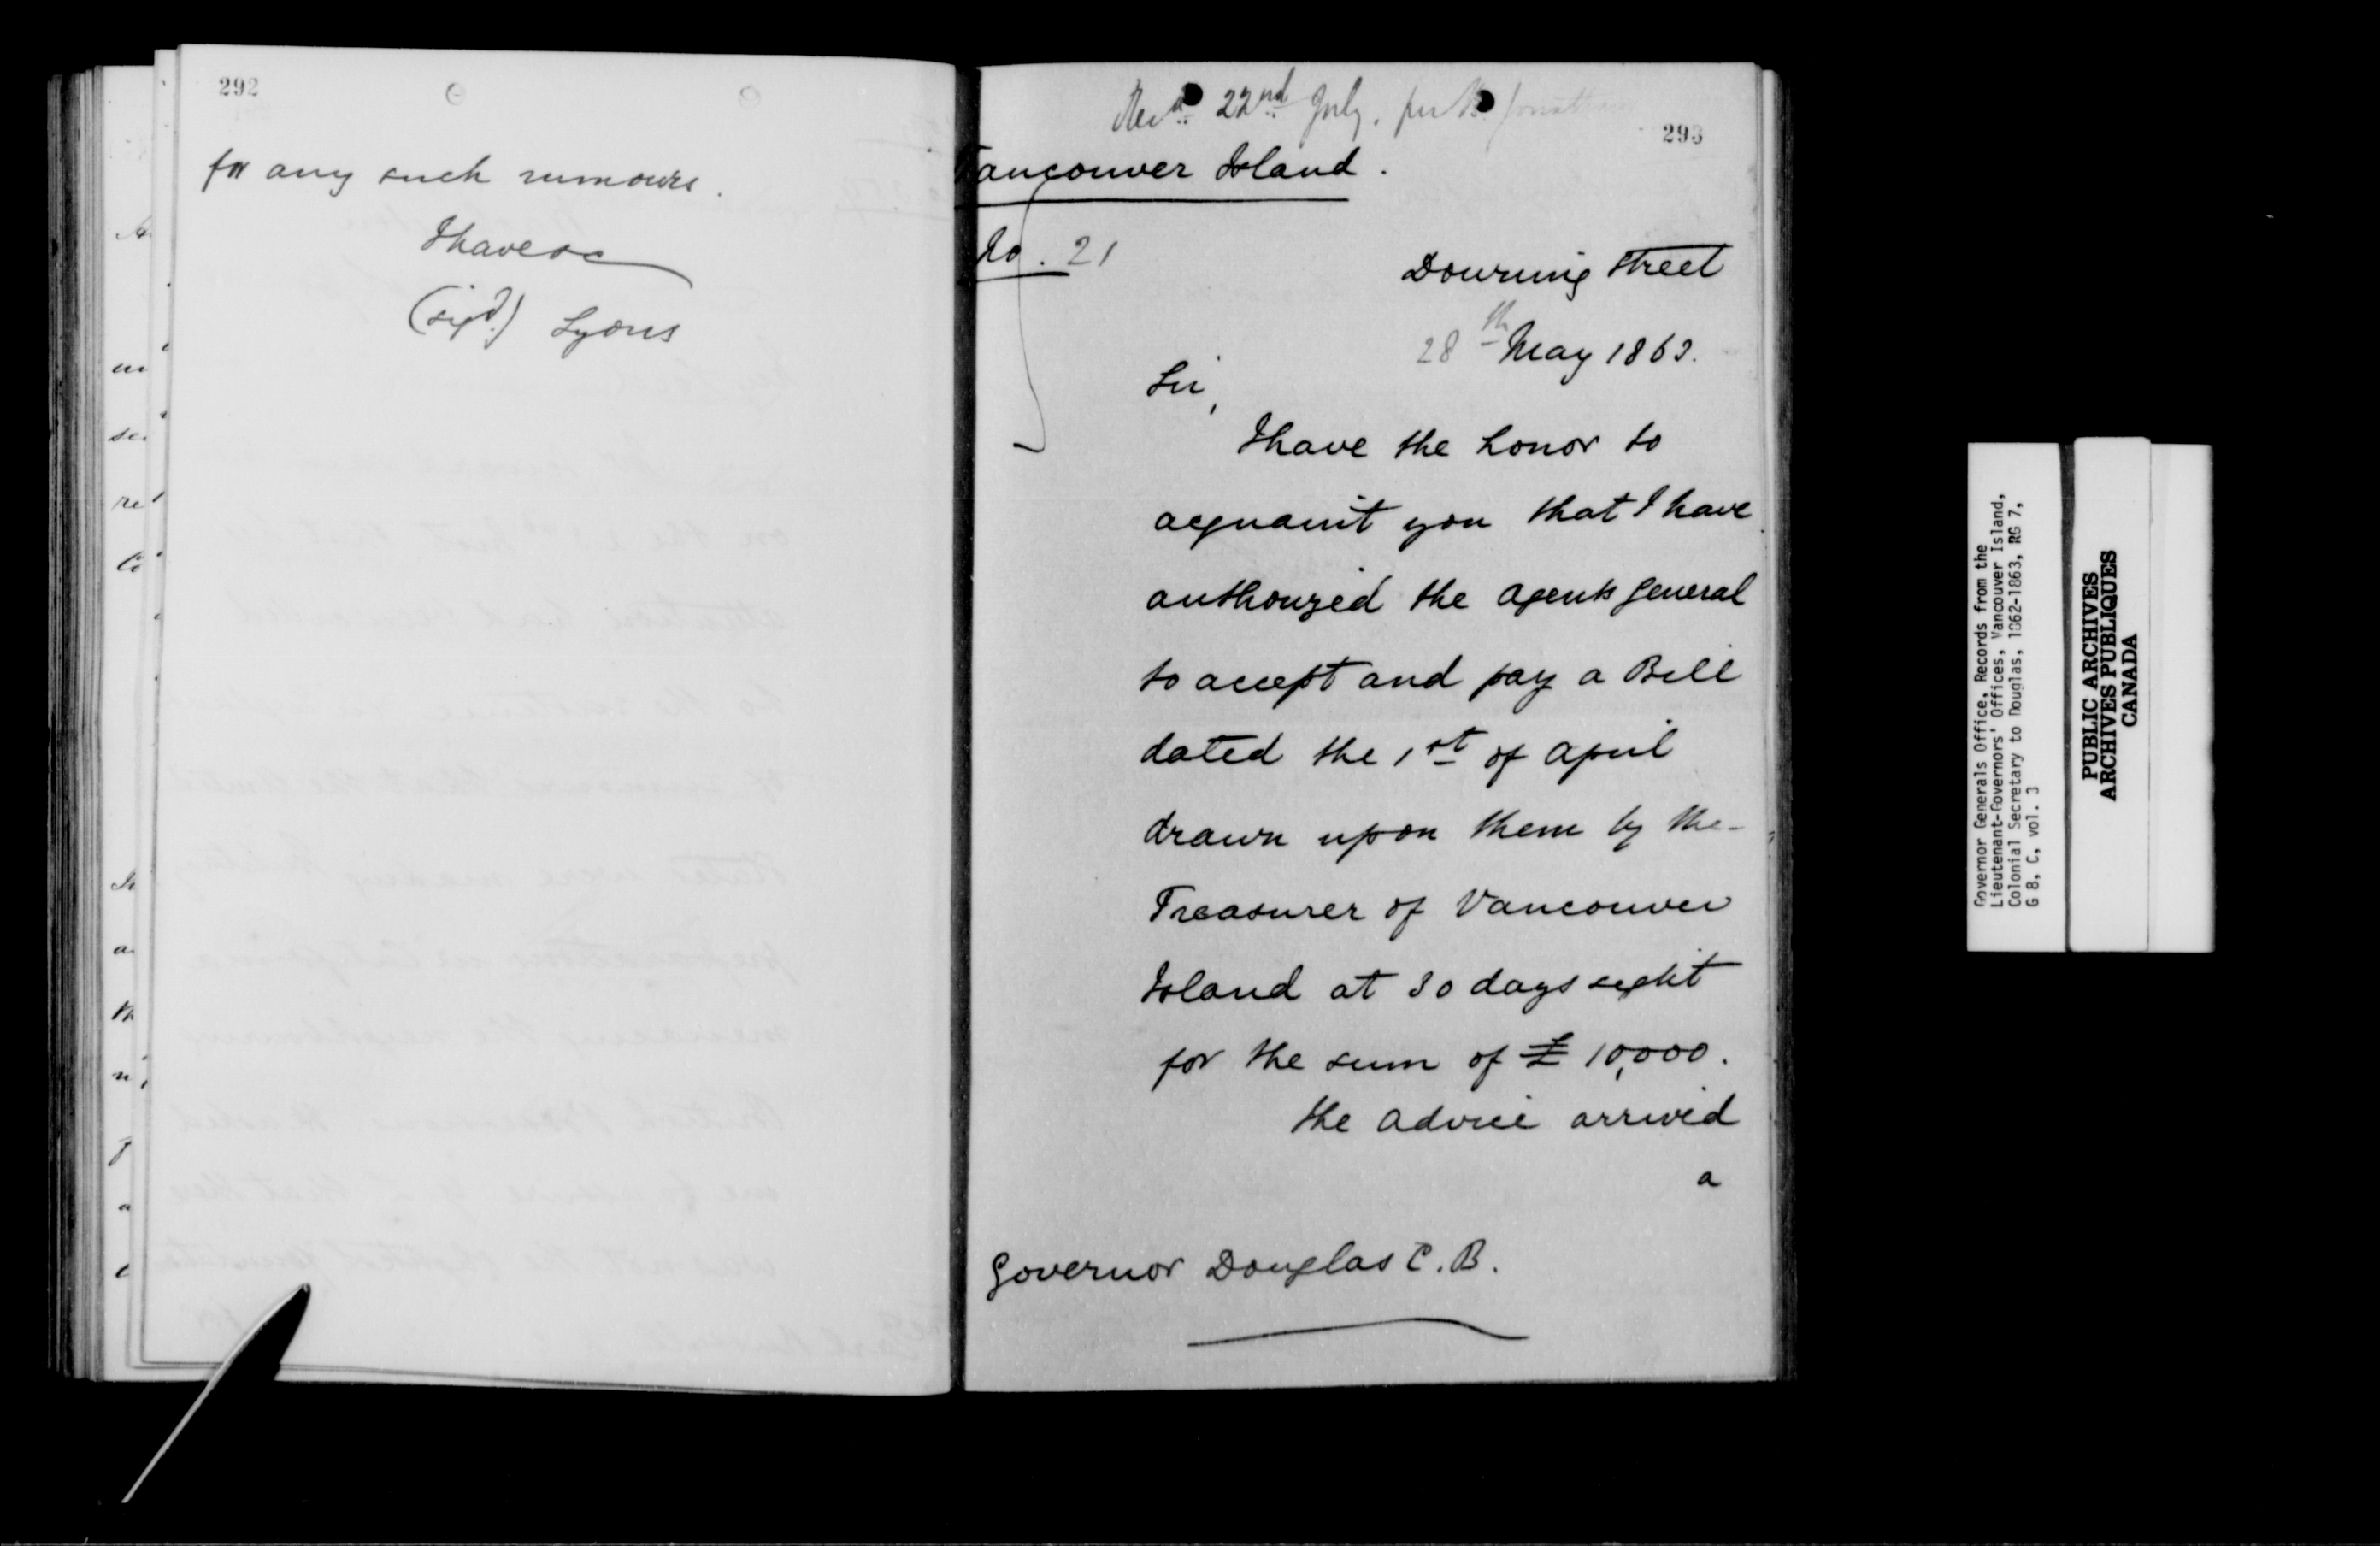 292
for any such rumours.
I have &c
(sigd.) Lyons
Recd. 22nd July. per B. Jonathan
293
Vancouver Island.
No. 21
Downing Street
28th May 1863.
Sir,
I have the honor to
acquaint you that I have
authorized the Agents General
to accept and pay a Bill
dated the 1st of April
drawn upon them by the
Treasurer of Vancouver
Island at 30 days sight
for the sum of £10,000.
The advice arrived
a
Governor Douglas C.B.
Governor Generals Office, Records from the
Lieutenant-Governors' Offices, Vancouver Island,
Colonial Secretary to Douglas, 1862-1863, RG 7,
G 8, C, vol. 3
PUBLIC ARCHIVES
ARCHIVES PUBLIQUES
CANADA